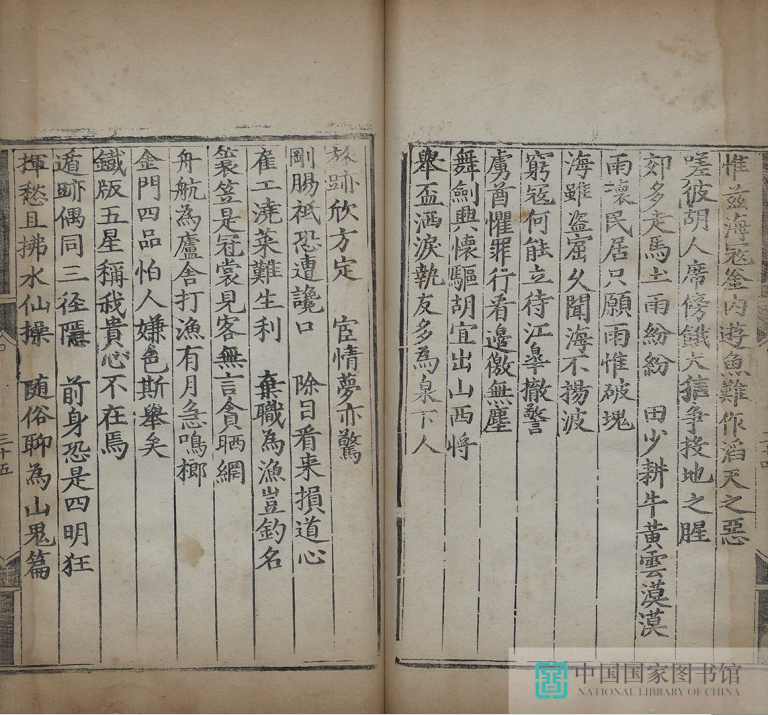 惟玆海寇釜內遊魚難作滔天之惡
嗟彼胡人席傍餓犬猶爭投地之腥
郊多走馬土雨紛紛 田少耕牛黃雲漠漠
雨壞民居只願雨惟破塊
海雖盜窟久聞海不揚波
窮寇何能立待江皋撤警
虜酋懼罪行看邊徼無塵
舞劍興懷驅胡宜出山西將
舉盃洒淚執友多為泉下人
三十四
旅跡欣方定 宦情夢亦驚
剛腸祇恐遭讒口 除目看来損道心
隺工澆菜難生利 棄職為漁豈釣名
簑笠是冠裳見客無言貪晒網
舟航為廬舍打漁有月急鳴榔
金門四品怕人嫌色斯舉矣
鐵版五星稱我貴心不在焉
遁跡偶同三径隱 前身恐是四明狂
揮愁且拂水仙操 随俗聊為山鬼篇
三十五
中国国家图书馆
NATIONAL LIBRARY OF CHINA